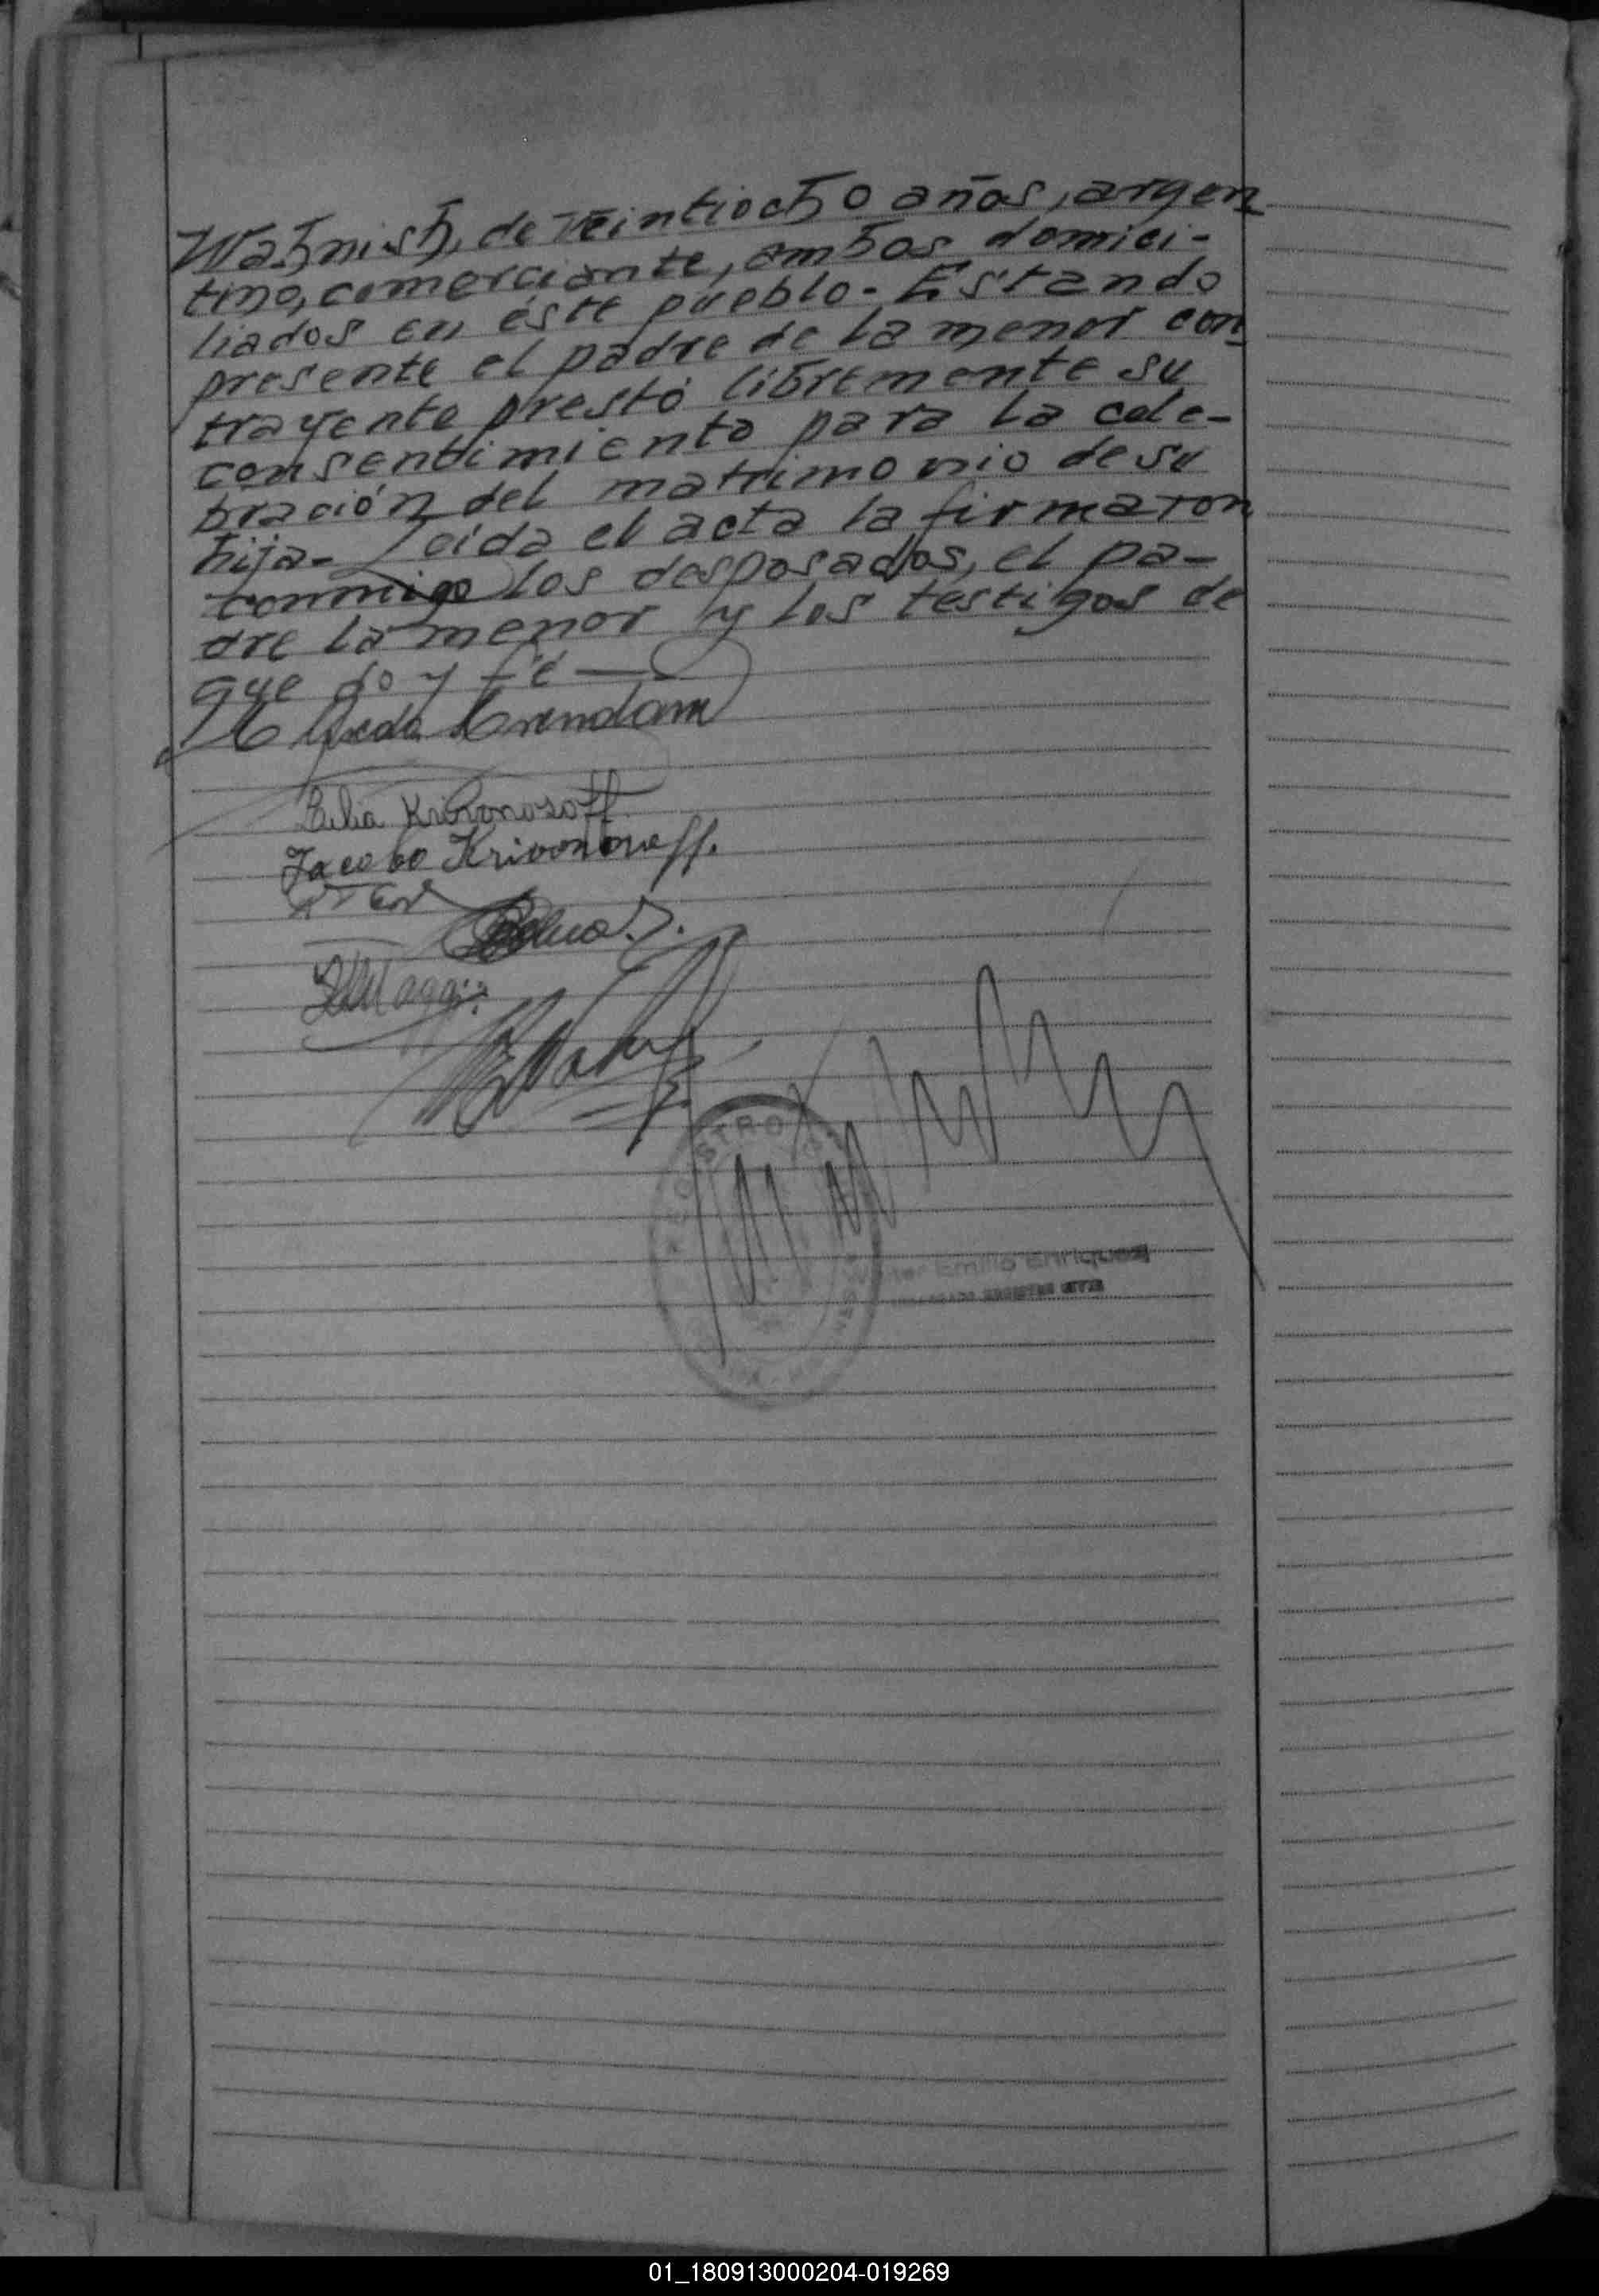 Wahnish, de veintiocho años, argen
tino, comerciante, ambos domici-
liados en éste pueblo.- Estando
presente el padre de la menor con
trayente prestó libremente su
consentimiento para la cele-
bración del matrimonio de su
hija.- Leída el acta la firmaron
conmigo los desposados, el pa-
dre la menor y los testigos de
que doy fé —
Krivonosoff
Jacobo Krivonosoff.
REGISTRO
Emilio Enriquez
REGISTRO CIVIL
01_180913000204-019269